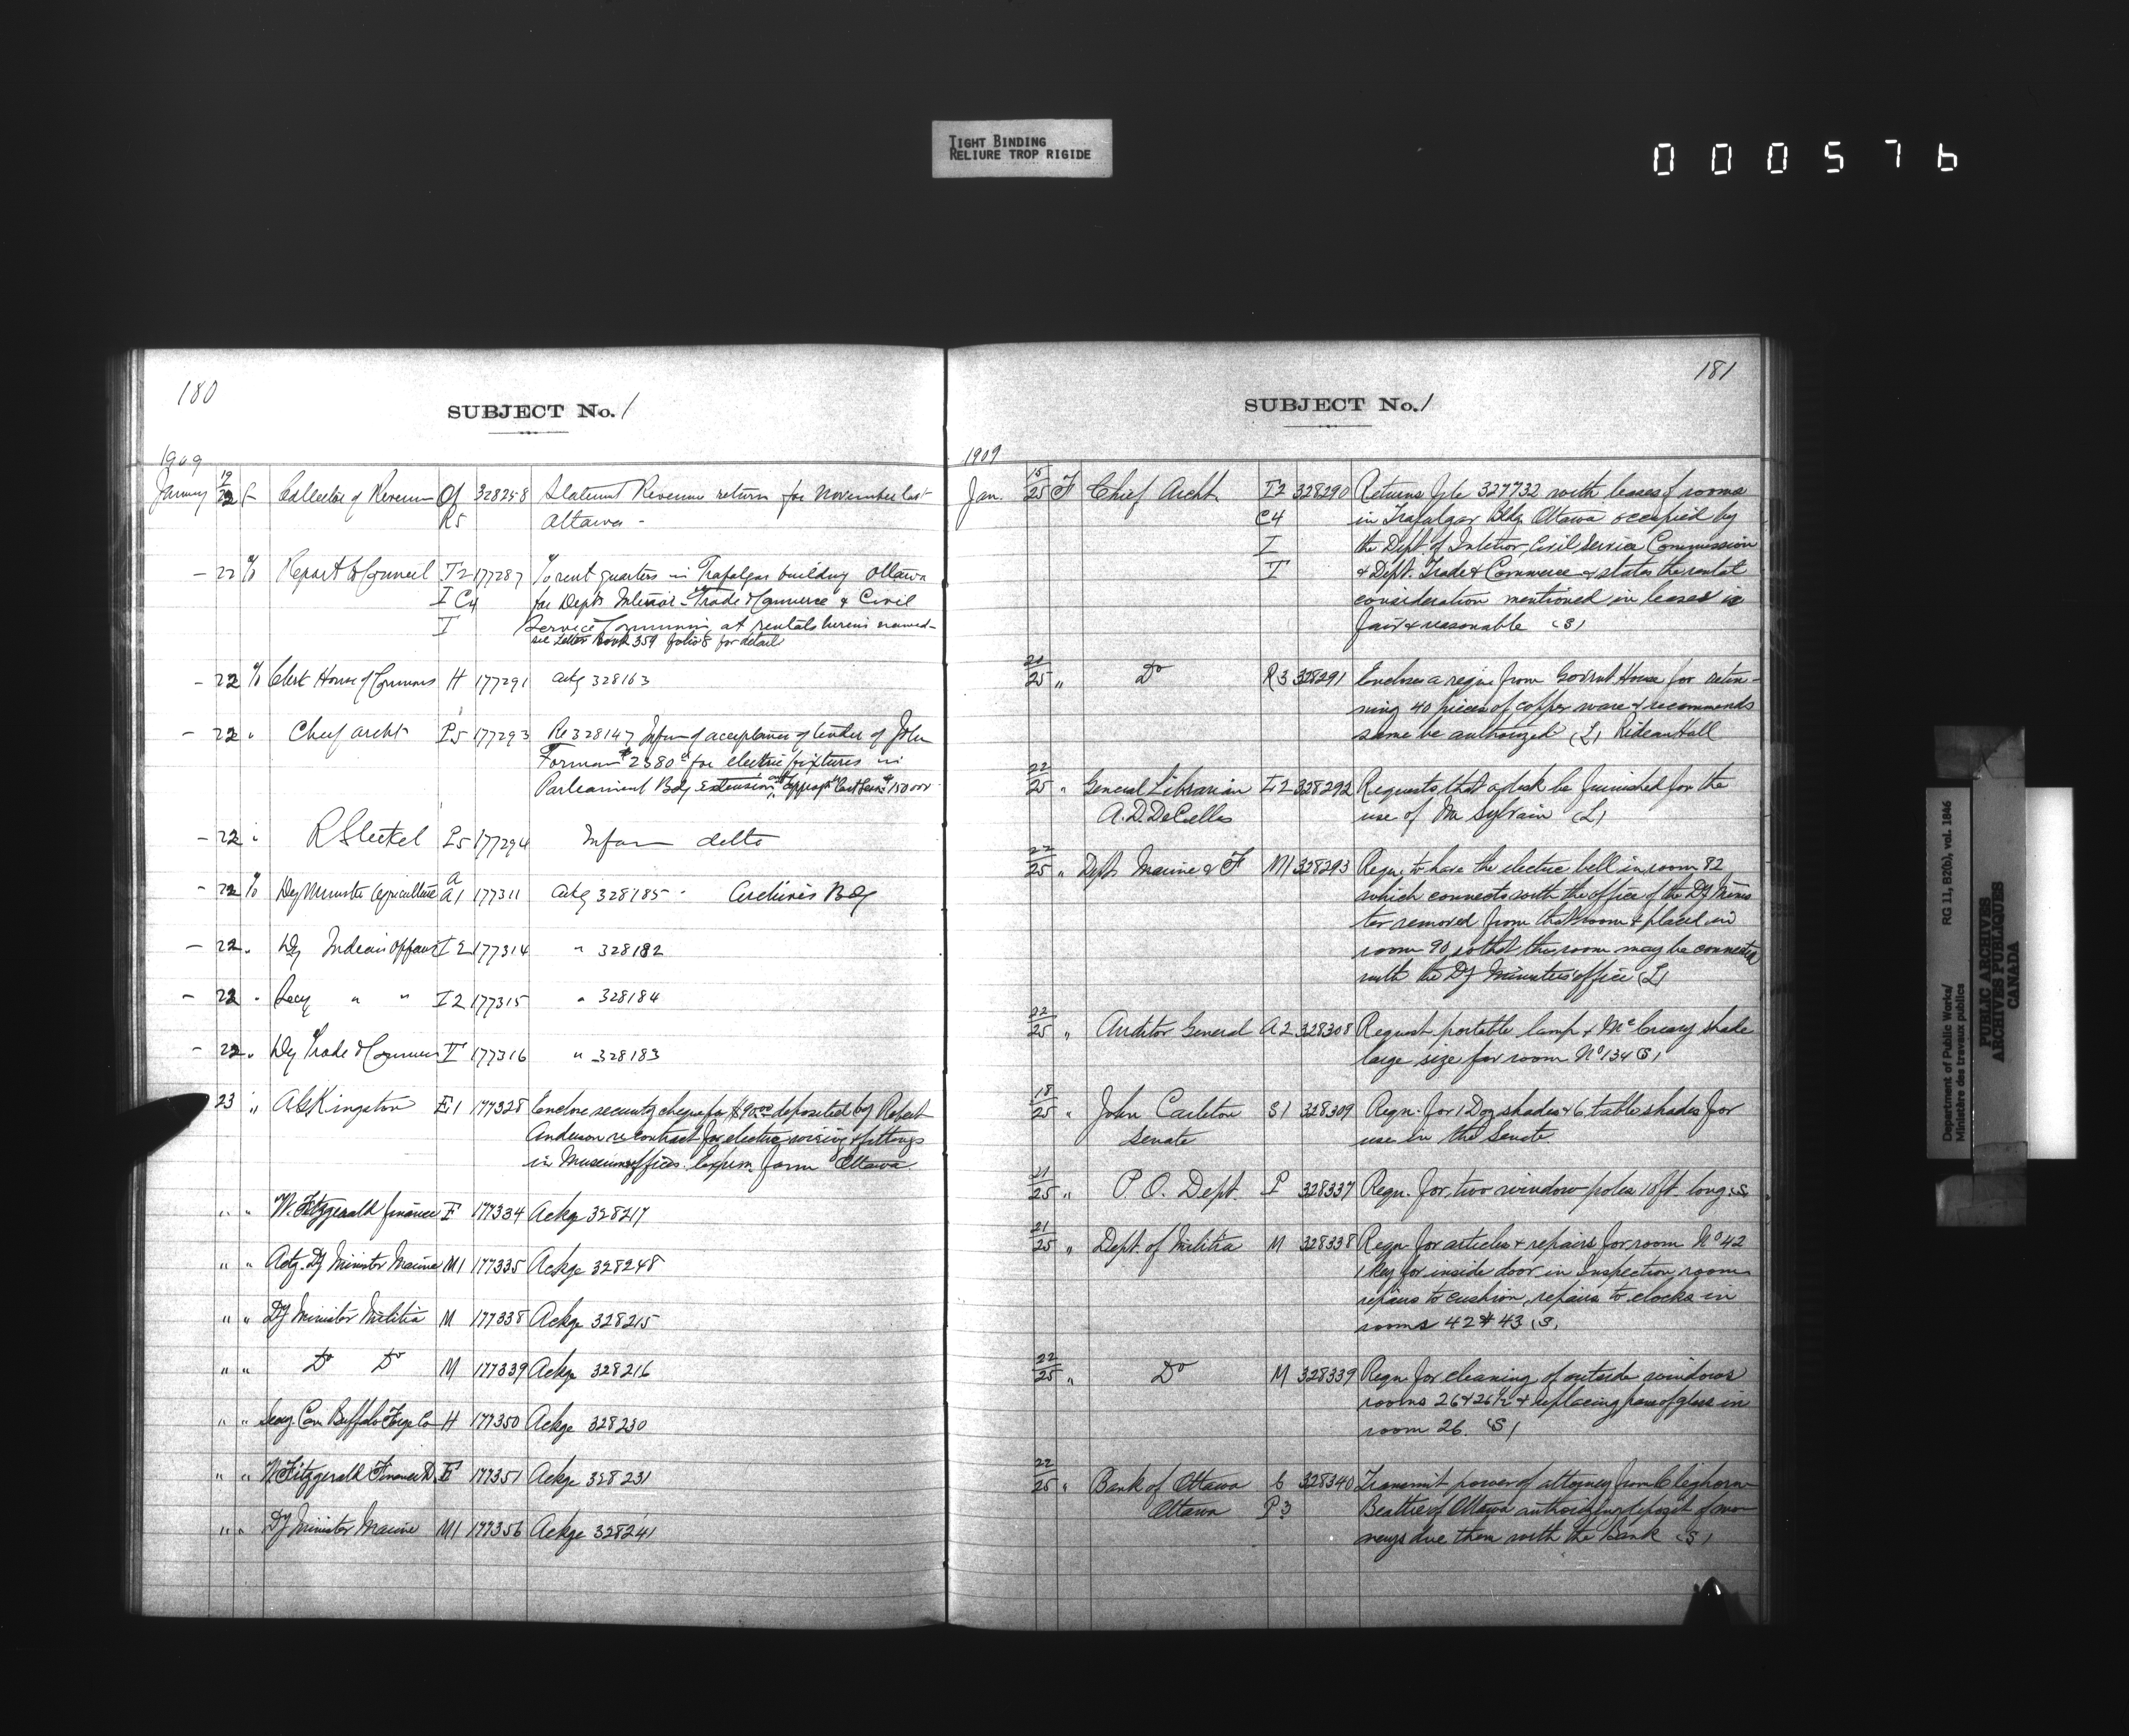 TIGHT BINDING
RELIURE TROP RIGIDE
000576
180
SUBJECT No. 1
1909
January 19/22 F Collector of Revenue Of 328258 Statement Revenue return for November last
R5 Ottawa -
- 22 % Report to Council T2 177287 To rent quarters in Trafalgar building Ottawa
I C4 for Depts Interior - Trade & Commerce & Civil
T Service Commission at rentals herein named -
see Letter Book 359 folio 8 for detail
- 22 % Clerk House of Commons H 177291 ackg 328163
- 22 " Chief archt P5 177293 Re 328147 Infm of acceptance of tender of John
Forman $2380 for electric fixtures in
Parliament Bdg extension
- 22 " R Sleckel P5 177294 Inform ditto
- 22 % Dey Minister Agriculture A A1 177311 ackg 328185 - Archives Bdg
- 22 " Dy Indian Affairs I2 177314 " 328182
- 22 " Secy " " I2 177315 " 328184
- 22 " Dy Trade & Commerce T 177316 " 328183
23 " A.G. Kingston E1 177328 Enclose security cheque for $90.00 deposited by Robert
Anderson re contract for electric wiring & fittings
in Museum offices Experm. farm Ottawa
" " W. Fitzgerald finance F 177334 Ackge 328217
" " Actg. Dy Minister Marine M1 177335 Ackge 328248
" " Dy Minister Militia M 177338 Ackge 328215
" " Do Do M 177339 Ackge 328216
" " Secy. Can Buffalo Forge Co H 177350 Ackge 328230
" " W. Fitzgerald Finance D F 177351 Ackge 328231
" " Dy Minister Marine M1 177356 Ackge 328241
181
SUBJECT No. 1
1909
Jan. 15/25 F Chief Archt. T2 328290 Returns file 327732 with leases of rooms
C4 in Trafalgar Bldg. Ottawa occupied by
I the Dept. of Interior, Civil Service Commission
T & Dept. Trade & Commerce & states the rental
consideration mentioned in leases is
fair & reasonable (S)
20/25 " Do R3 328291 Encloses a reqn. from Govrnt House for retin-
ning 40 pieces of copper ware & recommends
same be authorized (L) Rideau Hall
22/25 " General Librarian L2 328292 Requests that a desk be furnished for the
A.D. DeCelles use of Mr Sylvain (L)
22/25 " Dept. Marine & F M1 328293 Reqn. to have the electric bell in room 82
which connects with the office of the Dy Minis
ter removed from that room & placed in
room 90, so that this room may be connected
with the Dy Minister's office (L)
22/25 " Auditor General A2 328308 Request portable lamp & McCreary shade
large size for room No 134 (S)
18/25 " John Carleton S1 328309 Reqn. for 1 Doz shades & 6 table shades for
Senate use in the Senate
21/25 " P O. Dept. P 328337 Reqn. for two window poles 10 ft. long (S)
21/25 " Dept. of Militia M 328338 Reqn. for articles & repairs for room No 42
1 key for inside door in Inspection rooms
repairs to cushion, repairs to clocks in
rooms 42 & 43 (S)
22/25 " Do M 328339 Reqn. for cleaning of outside windows
rooms 26 & 26½ & replacing pane of glass in
room 26. (S)
22/25 " Bank of Ottawa C 328340 Transmit power of attorney from Cleghorn
Ottawa P3 Beattie of Ottawa authorizing deposit of mo-
neys due them with the bank (S)
Department of Public Works/ RG 11, B2(b), vol. 1846
Ministère des travaux publics
PUBLIC ARCHIVES
ARCHIVES PUBLIQUES
CANADA